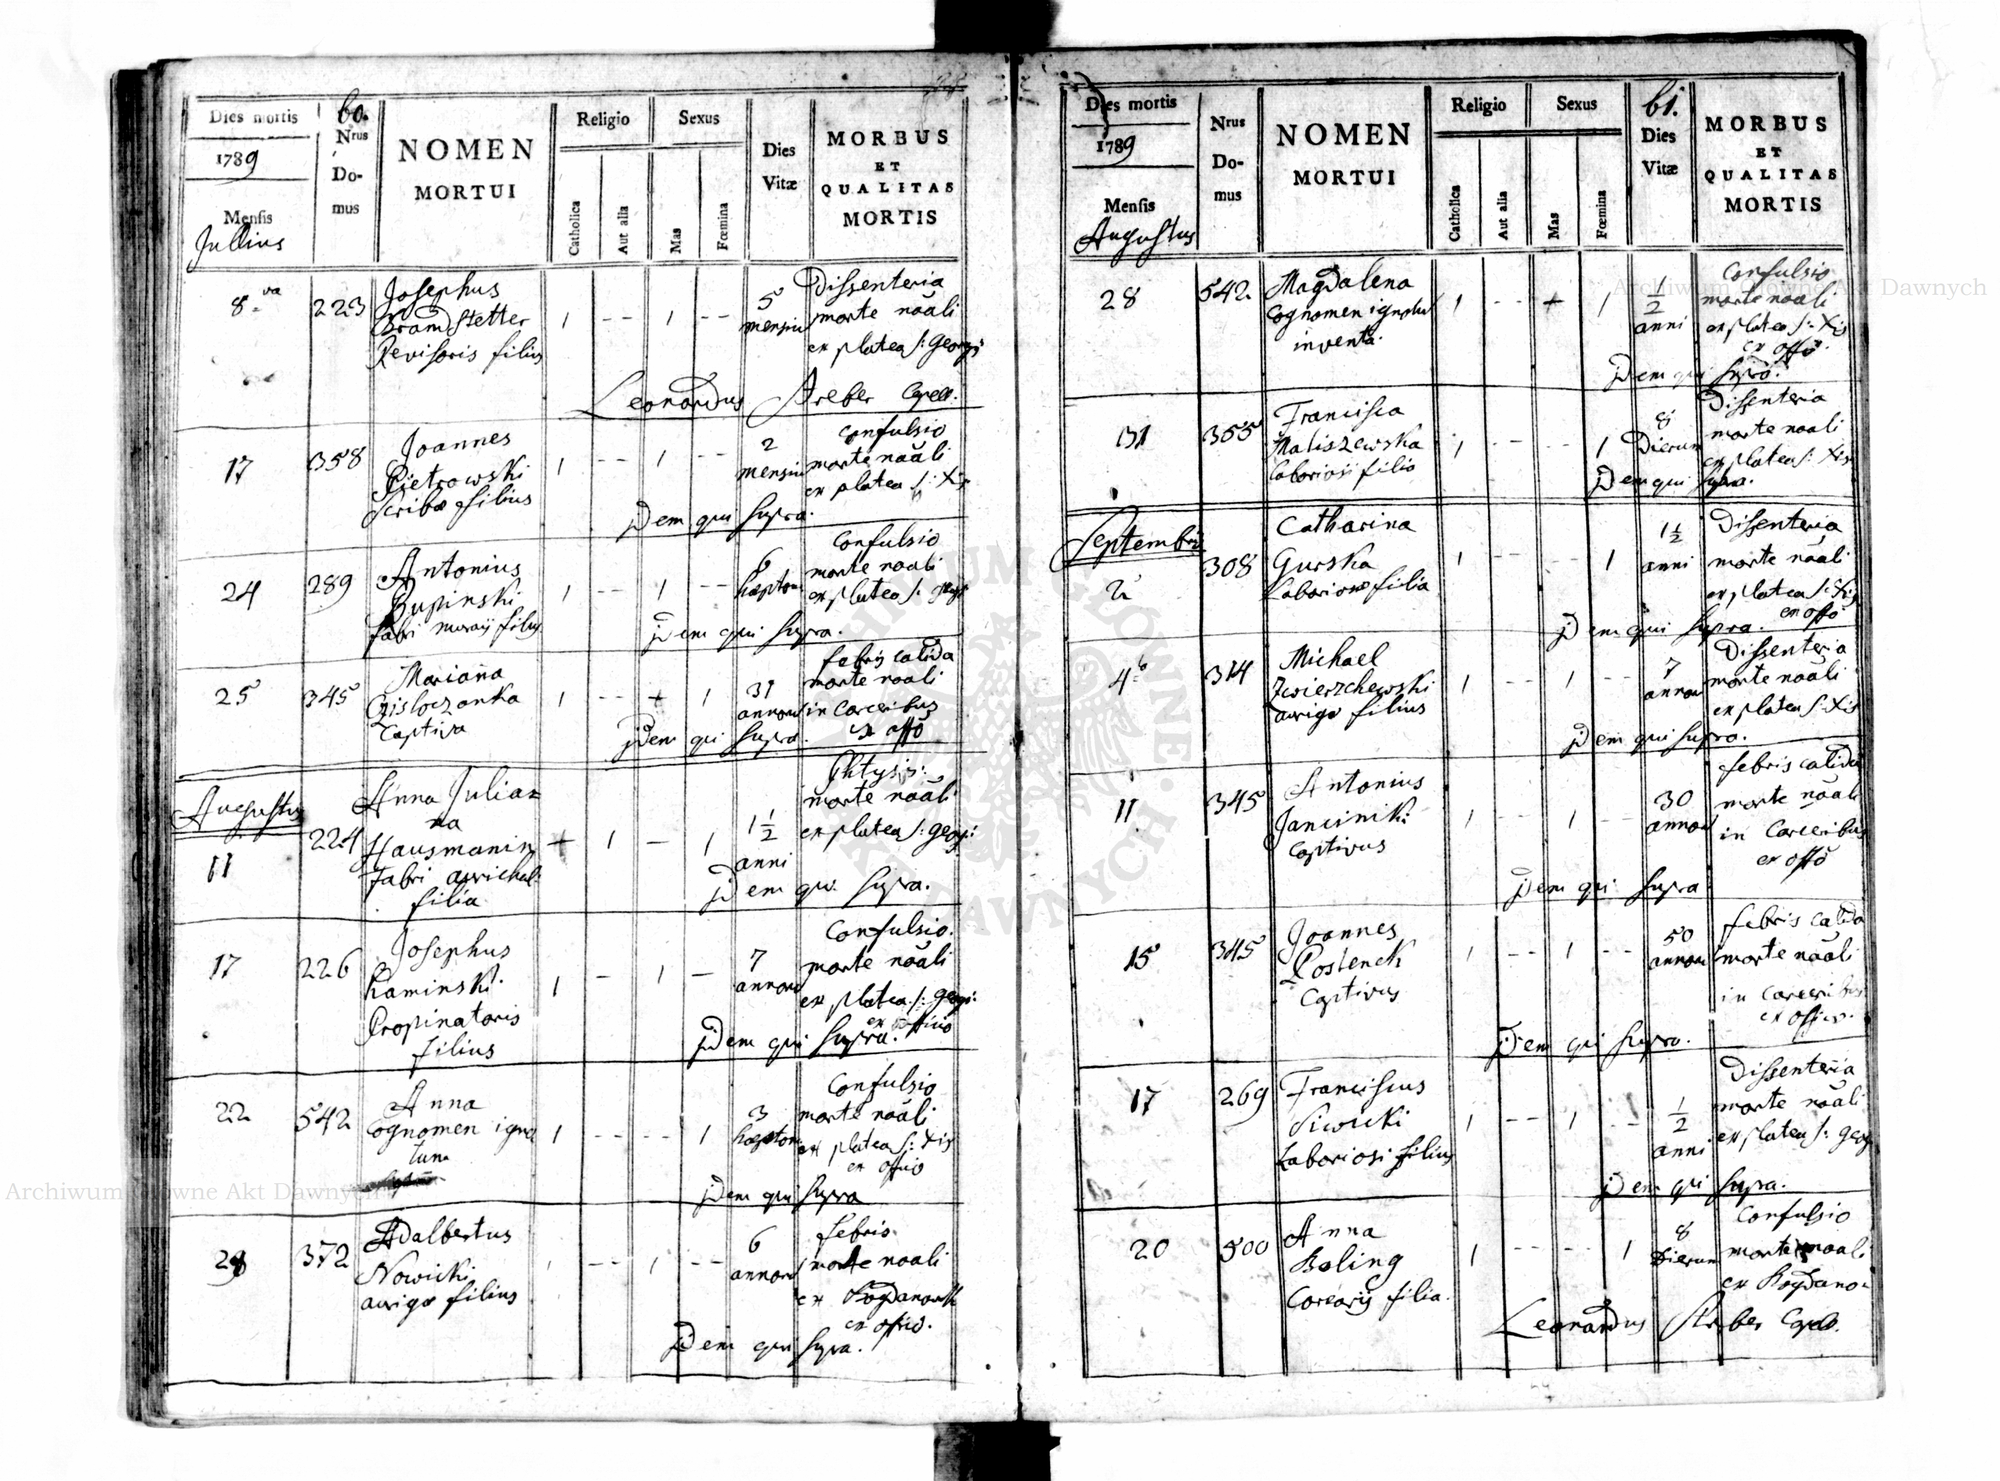 60.
Dies mortis
Nrus Do- mus
NOMEN MORTUI
Religio
Sexus
Dies Vitæ
MORBUS ET QUALITAS MORTIS
1789
Mensis
Jullius
Catholica
Aut alia
Mas
Fœmina
8va 223 Josephus 1 -- 1 -- 5 Dissenteria
Bramstetter mensium morte nãali
Revisoris filius ex platea S: Georgi
Leonardus Areber Capell.
17 358 Joannes 1 -- 1 -- 2 Confulsio
Pietrowski mensium morte nãali
Scribæ filius ex platea S: Xis
Jdem qui supra.
24 289 Antonius 1 -- 1 -- 6 Confulsio
Rupinski hepto morte naali
fabri murarij filius ex platea S: Georgi
Jdem qui supra.
25 345 Marianna 1 -- + 1 31 febris calida
annorum morte naali
Captiva in carceribus
ex offõ
Jdem qui supra.
Augustus
11 224 Anna Julian= + 1 - 1 1 1/2 Phtysis:
na anni morte nãali
Hausmanin ex platea S: Georgi
fabri aurichal:
filia
Jdem qui supra.
17 226 Josephus 1 - 1 - 7 Confulsio.
Kaminski annorum morte nãali
Propinatoris ex platea S: Georgi:
filius ex officio
Jdem qui supra.
22 542 Anna 1 -- -- 1 3 Confulsio
Cognomen igno morte naali
tum ex platea S: Xis
ex offcio
Jdem qui supra
28 372 Adalbertus 1 -- 1 -- 6 febris
Nowicki annorum morte naali
aurigæ filius ex Bogdanowk
ex officio.
Jdem qui supra.
61.
Dies mortis
Nrus Do- mus
NOMEN MORTUI
Religio
Sexus
Dies Vitæ
MORBUS ET QUALITAS MORTIS
1789
Mensis
Augustus
Catholica
Aut alia
Mas
Fœmina
28 542 Magdalena 1 -- + 1 1/2 Confulsio
Cognomen ignotum anni morte naali
inventa ex platea S: Xis
ex offõ.
Jdem qui supra.
31 355 Francisca 1 -- -- 1 8 Dissenteria
Maliszewska Dierum morte naali
laboriosi filia ex platea S: Xis
Jdem qui supra.
Septembris
2 308 Catharina 1 -- 1 1 1/2 Dissenteria
Gurska anni morte nãali
Laboriosæ filia ex platea S: Xis
ex offõ
Jdem qui supra.
4 314 Michael 1 -- 1 -- 7 Dissenteria
Zwierzchewski annorum morte nãali
aurigæ filius ex platea S: Xis
Jdem qui supra.
11 345 Antonius 1 -- 1 -- 30 febris calida
Janicniki annorum morte nãali
Captivus in Carceribus
ex offõ
Jdem qui supra
15 345 Joannes 1 -- 1 -- 50 febris calida
Postench annorum morte naali
Captivus in carceribus
ex officio.
Jdem qui supra.
17 269 Franciscus 1 -- 1 -- 1/2 Dissenteria
Siwicki anni morte nãali
Laboriosi filius ex platea S: Georgi
Jdem qui supra.
20 500 Anna 1 -- -- 1 8 Confulsio
Boling Dierum morte naali
Corearij filia. ex Bogdano=
Leonardus Areber Capell.
Archiwum Główne Akt Dawnych
Archiwum Główne Akt Dawnych
ARCHIWUM GŁÓWNE AKT DAWNYCH · ARCHIWUM GŁÓWNE